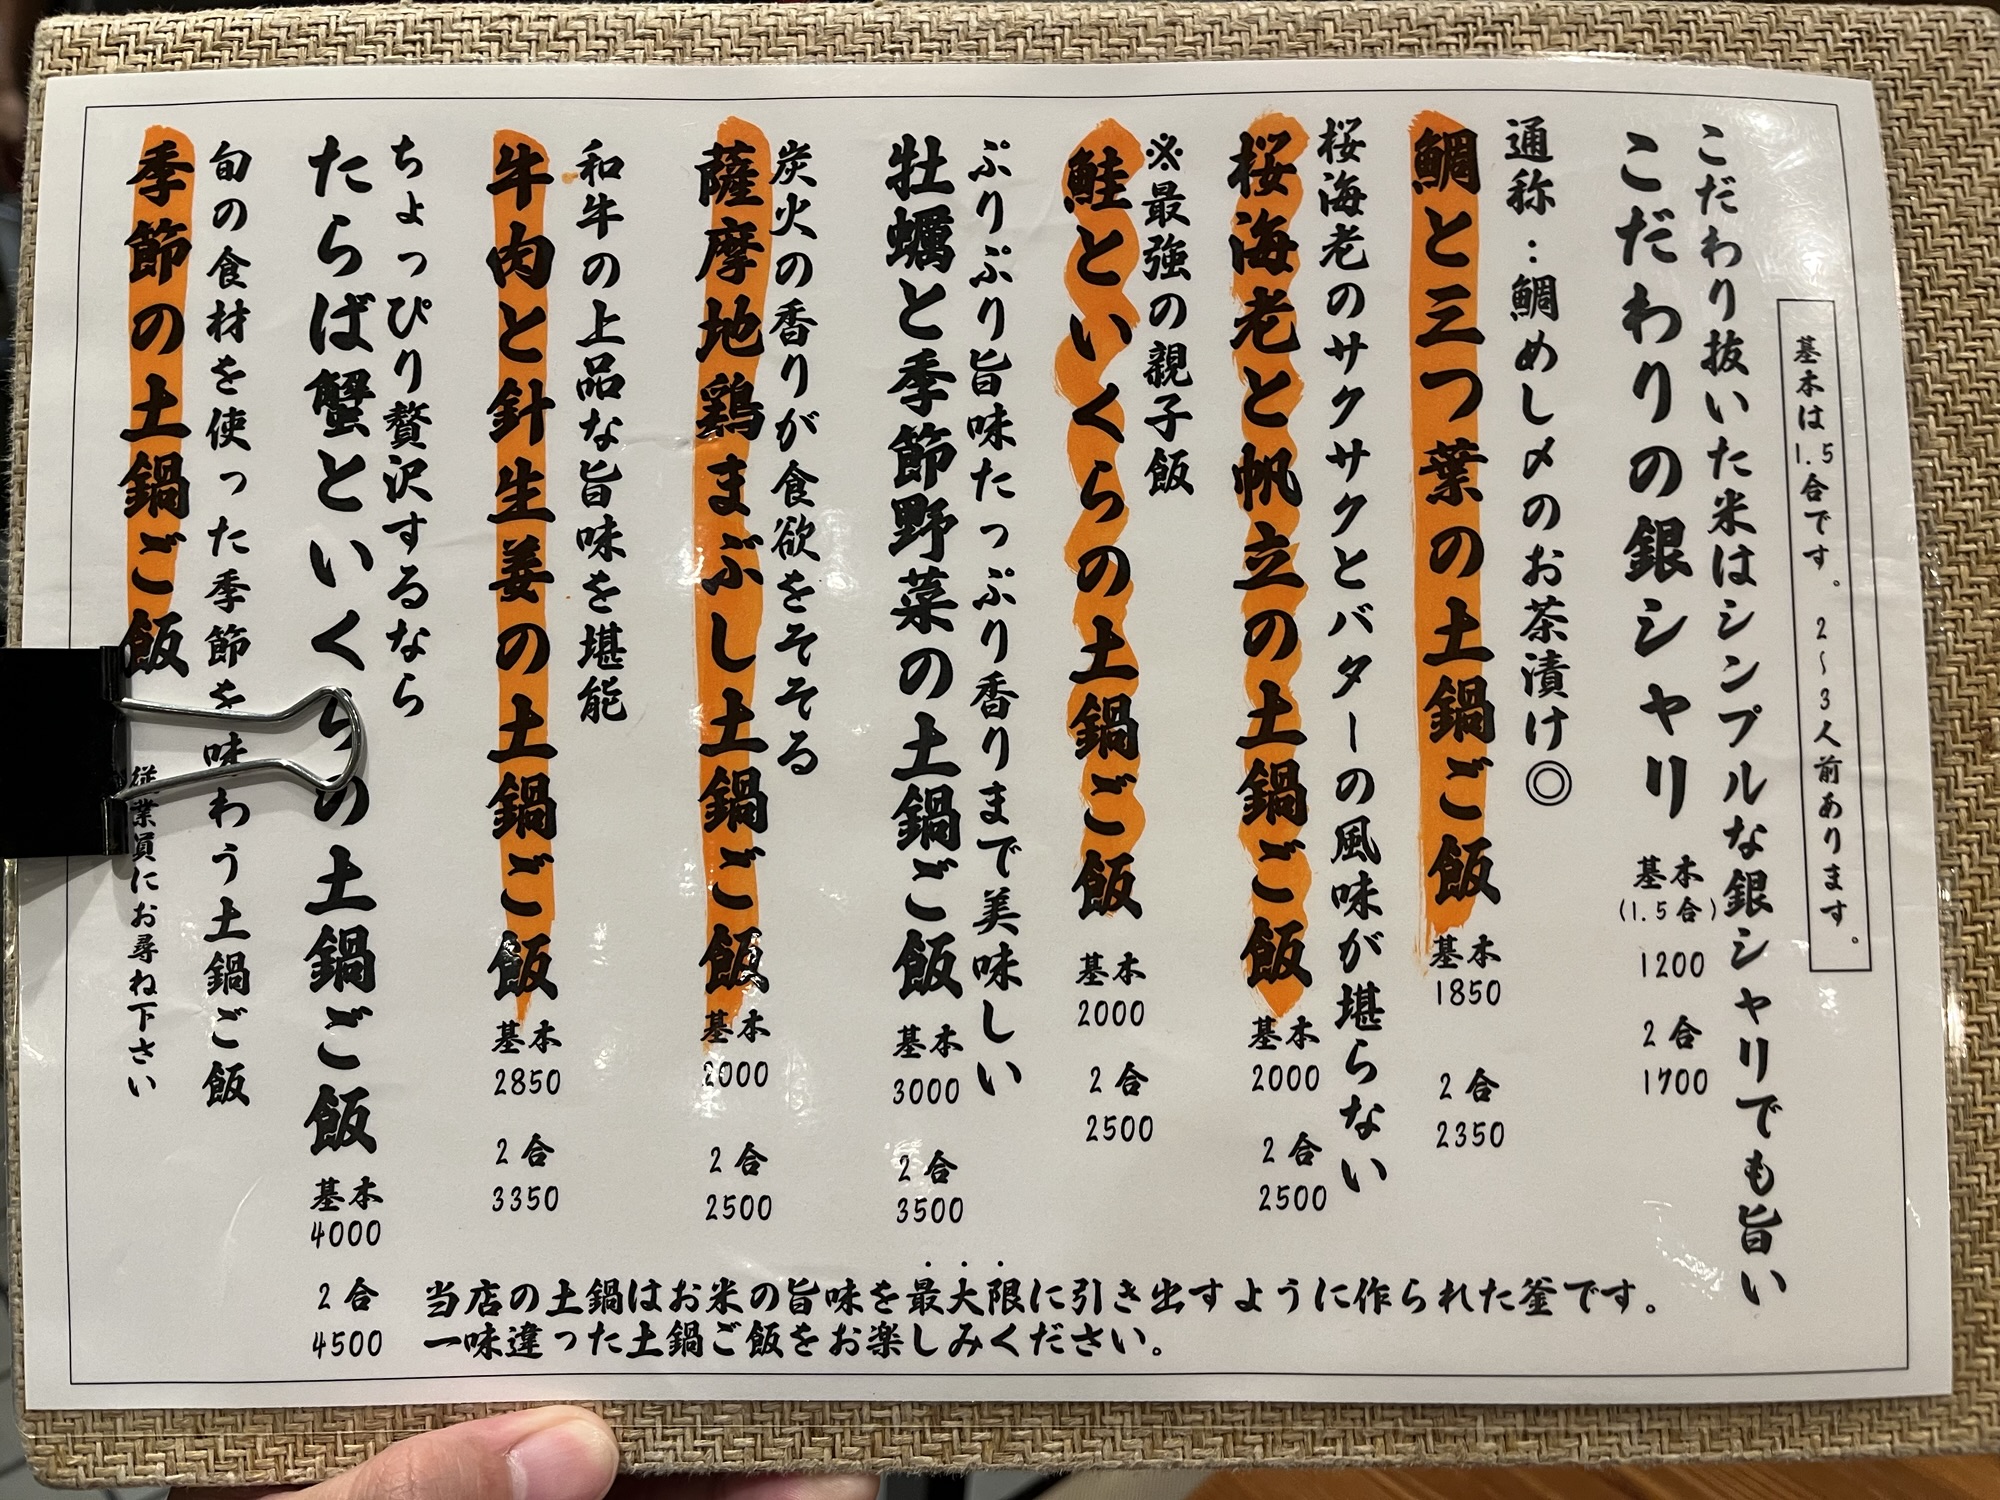 基本は1.5合です。2〜3人前あります。
こだわり抜いた米はシンプルな銀シャリでも旨い
こだわりの銀シャリ
基本
(1.5合)
1200
2合
1700
通称：鯛めし〆のお茶漬け◎
鯛と三つ葉の土鍋ご飯
基本
1850
2合
2350
桜海老のサクサクとバターの風味が堪らない
桜海老と帆立の土鍋ご飯
基本
2000
2合
2500
※最強の親子飯
鮭といくらの土鍋ご飯
基本
2000
2合
2500
ぷりぷり旨味たっぷり香りまで美味しい
牡蠣と季節野菜の土鍋ご飯
基本
3000
2合
3500
炭火の香りが食欲をそそる
薩摩地鶏まぶし土鍋ご飯
基本
2000
2合
2500
和牛の上品な旨味を堪能
牛肉と針生姜の土鍋ご飯
基本
2850
2合
3350
ちょっぴり贅沢するなら
たらば蟹といくらの土鍋ご飯
基本
4000
2合
4500
旬の食材を使った季節を味わう土鍋ご飯
季節の土鍋ご飯
従業員にお尋ね下さい
当店の土鍋はお米の旨味を最大限に引き出すように作られた釜です。
一味違った土鍋ご飯をお楽しみください。